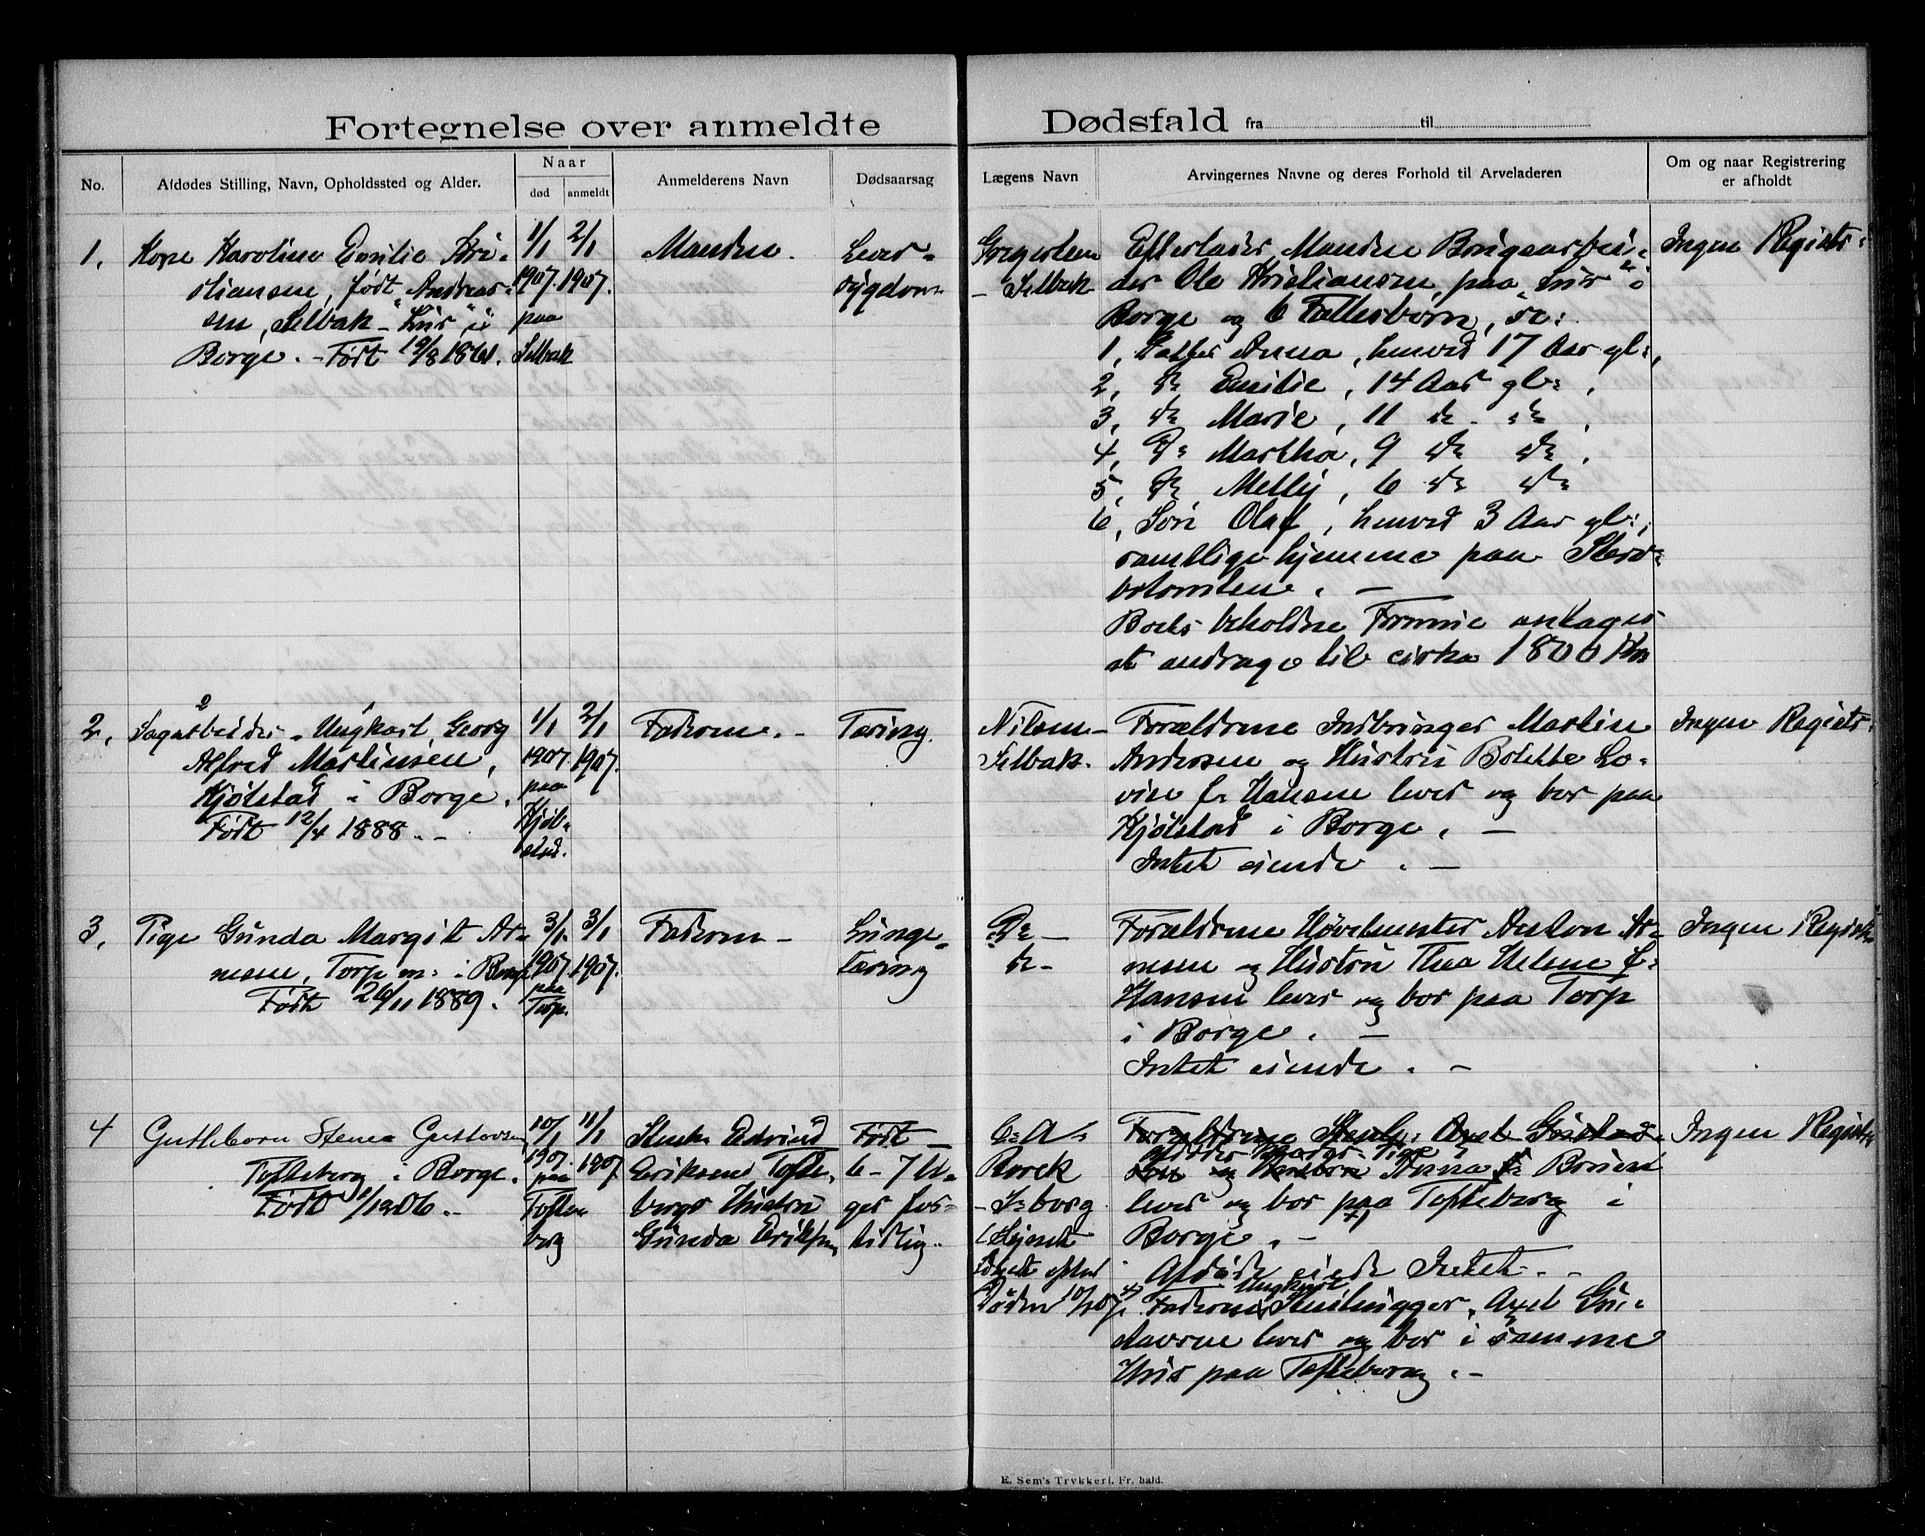 Fortegnelse over anmeldte Dødsfald fra til
No.
Afdødes Stilling, Navn, Opholdssted og Alder.
Naar
død
anmeldt
Anmelderens Navn
Dødsaarsag
Lægens Navn
Arvingernes Navne og deres Forhold til Arveladeren
Om og naar Registrering
er afholdt
1.
Kone Karoline Emilie Kri-
stiansen, født Andreas-
sen, Selbak "Lur" i
Borge. - Født 19/8 1861.
1/1
1907.
paa
Selbak
2/1
1907.
Manden.
Lever-
sygdom
Gregersen
- Selbak
Efterlader Manden Brugsarbei-
der Ole Kristiansen, paa "Lur" i
Borge og 6 Fællesbørn, sc:
1, Datter Anna, henved 17 Aar gl:,
2, do Emilie, 14 Aar gl:,
3, do Marie, 11 do do,
4, Do Martha, 9 do do,
5, do Melly, 6 do do
6, Søn Olaf, henved 3 Aar gl:,
samtlige hjemme paa Sterv-
botomten. -
Boets beholdne Formue antages
at andrage til cirka 1800 Kr
Ingen Registr:
2.
Sagarbeider, Ungkarl Georg
Alfred Martinsen,
Kjølstad i Borge.
Født 12/4 1888. -
1/1
1907.
paa
Kjøl-
stad.
2/1
1907.
Faderen. -
Tæring.
Nilsen -
Selbak.
Forældrene Indbringer Martin
Andersen og Hustru Bolette Lo-
vise f. Hansen lever og bor paa
Kjølstad i Borge. -
Intet eiende. -
Ingen Registr:
3.
Pige Gunda Margit Ar-
nesen, Torp m: i Borge
Født 26/11 1889.
3/1.
1907.
paa
Torp.
3/1
1907.
Faderen -
Lunge-
tæring
Do -
do -
Forældrene Høvelmester Anton Ar-
nesen og Hustru Thea Helene f:
Hansen lever og bor paa Torp
i Borge. -
Intet eiende. -
Ingen Registr
4
Guttebarn Stener Gustavsen
Tofteberg i Borge.
Født 1/1 1906. -
10/1
1907.
paa
Tofte
berg
11/1
1907.
Edvind
Eriksens Tofte-
bergs Hustru
Gunda Eriksen
Født
6-7 U-
ger for-
tidlig.
C. A.
Borck
- F: borg
(Hjemt
efter
Døden 10/1 07).
Forældrene Axel Gustav-
sen og Hustru Anna f:
Moder Pige
lever og bor paa Tofteberg i
+)
Borge. -
Afdøde eiede Intet. -
+) Faderen, Ungkarl Stenhugger, Axel Gu-
stavsen lever og bor i samme
Hus paa Tofteberg. -
Ingen Registr
E. Sem's Trykkeri, Fr. hald.